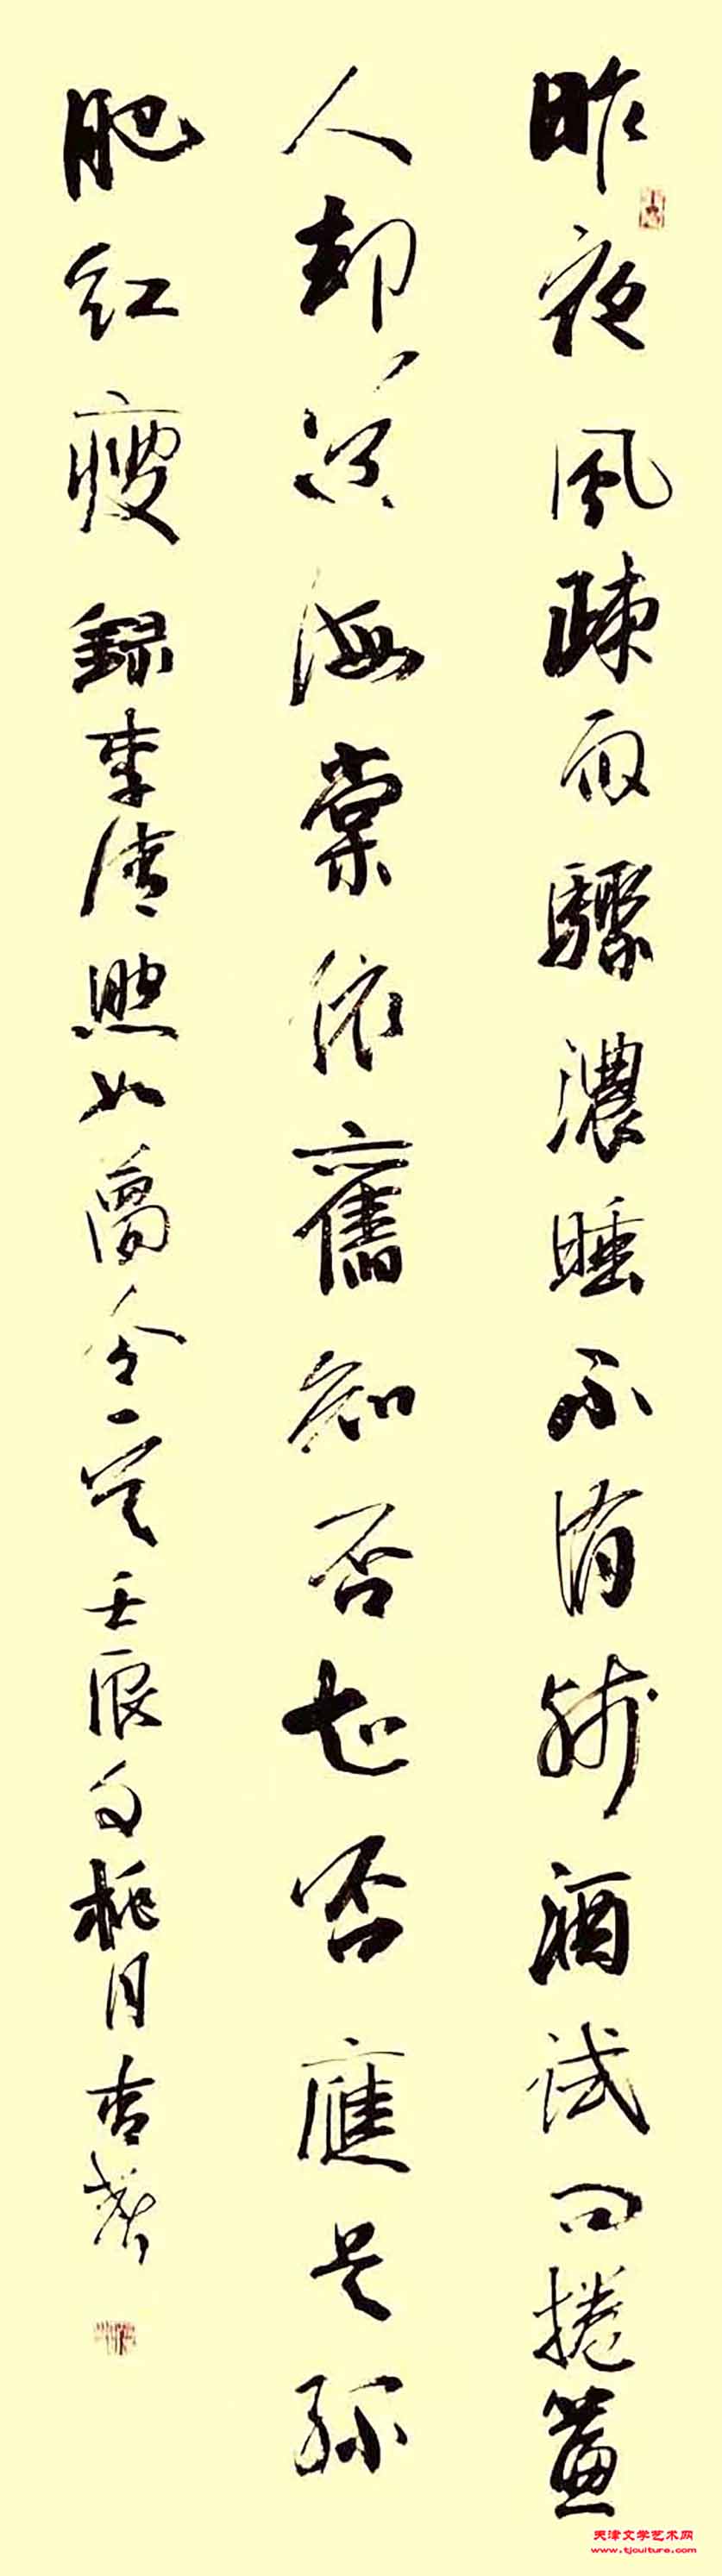 昨夜風疎雨驟濃睡不消殘酒試問捲簾
人却道海棠依舊知否知否應是綠
肥紅瘦 錄李清照如夢令一首 壬辰 桃月
天津文学艺术网
www.tjculture.com